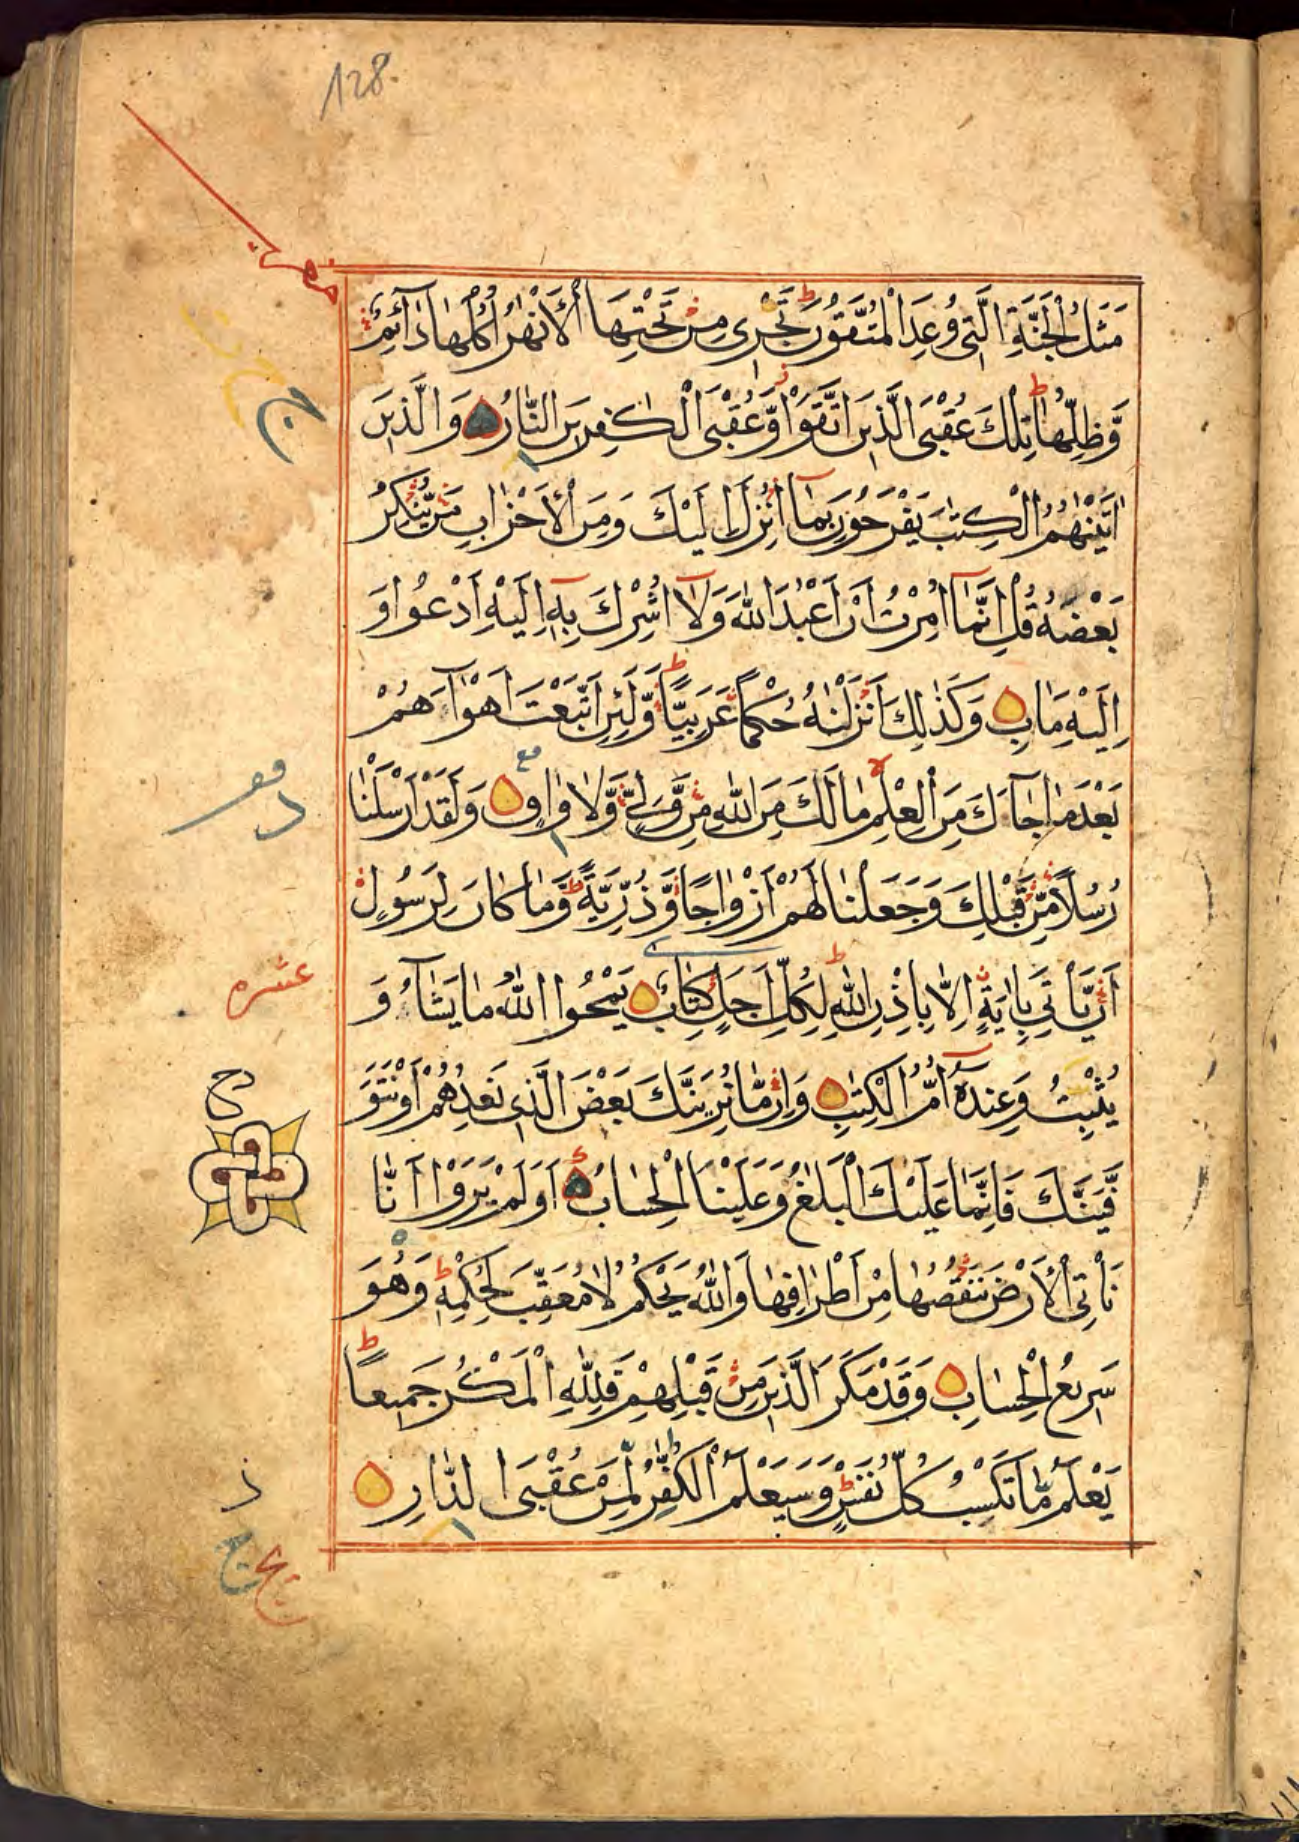 128
مَثَلُ الْجَنَّةِ الَّتِي وُعِدَ الْمُتَّقُونَ ط تَجْرِي مِنْ تَحْتِهَا الْأَنْهٰرُ اُكُلُهَا دَآئِمٌ
وَّظِلُّهَا ط تِلْكَ عُقْبَى الَّذِينَ اتَّقَوْا ز وَّعُقْبَى الْكٰفِرِينَ النَّارُ وَالَّذِينَ
اٰتَيْنٰهُمُ الْكِتٰبَ يَفْرَحُونَ بِمَآ اُنْزِلَ اِلَيْكَ وَمِنَ الْأَحْزَابِ مَنْ يُّنْكِرُ
بَعْضَهُ قُلْ اِنَّمَآ اُمِرْتُ اَنْ اَعْبُدَ اللّٰهَ وَلَآ اُشْرِكَ بِهٖ اِلَيْهِ اَدْعُوا وَ
اِلَيْهِ مَاٰبِ وَكَذٰلِكَ اَنْزَلْنٰهُ حُكْمًا عَرَبِيًّا ط وَّلَئِنِ اتَّبَعْتَ اَهْوَآءَهُمْ
بَعْدَ مَا جَآءَكَ مِنَ الْعِلْمِ لا مَا لَكَ مِنَ اللّٰهِ مِنْ وَّلِيٍّ وَّلَا وَاقٍ وَلَقَدْ اَرْسَلْنَا
رُسُلًا مِّنْ قَبْلِكَ وَجَعَلْنَا لَهُمْ اَزْوَاجًا وَّذُرِّيَّةً ط وَّمَا كَانَ لِرَسُولٍ
اَنْ يَّأْتِيَ بِاٰيَةٍ اِلَّا بِاِذْنِ اللّٰهِ ط لِكُلِّ اَجَلٍ كِتَابٌ يَمْحُوا اللّٰهُ مَا يَشَآءُ وَ
عشره
يُثْبِتُ وَعِنْدَهٗٓ اُمُّ الْكِتٰبِ وَاِنْ مَّا نُرِيَنَّكَ بَعْضَ الَّذِي نَعِدُهُمْ اَوْ نَتَوَ
ح
فَّيَنَّكَ فَاِنَّمَا عَلَيْكَ الْبَلٰغُ وَعَلَيْنَا الْحِسَابُ اَوَلَمْ يَرَوْا اَنَّا
نَأْتِي الْأَرْضَ نَنْقُصُهَا مِنْ اَطْرَافِهَا وَاللّٰهُ يَحْكُمُ لَا مُعَقِّبَ لِحُكْمِهٖ ط وَهُوَ
سَرِيعُ الْحِسَابِ وَقَدْ مَكَرَ الَّذِينَ مِنْ قَبْلِهِمْ فَلِلّٰهِ الْمَكْرُ جَمِيعًا ط
يَعْلَمُ مَا تَكْسِبُ كُلُّ نَفْسٍ ط وَسَيَعْلَمُ الْكُفّٰرُ لِمَنْ عُقْبَى الدَّارِ